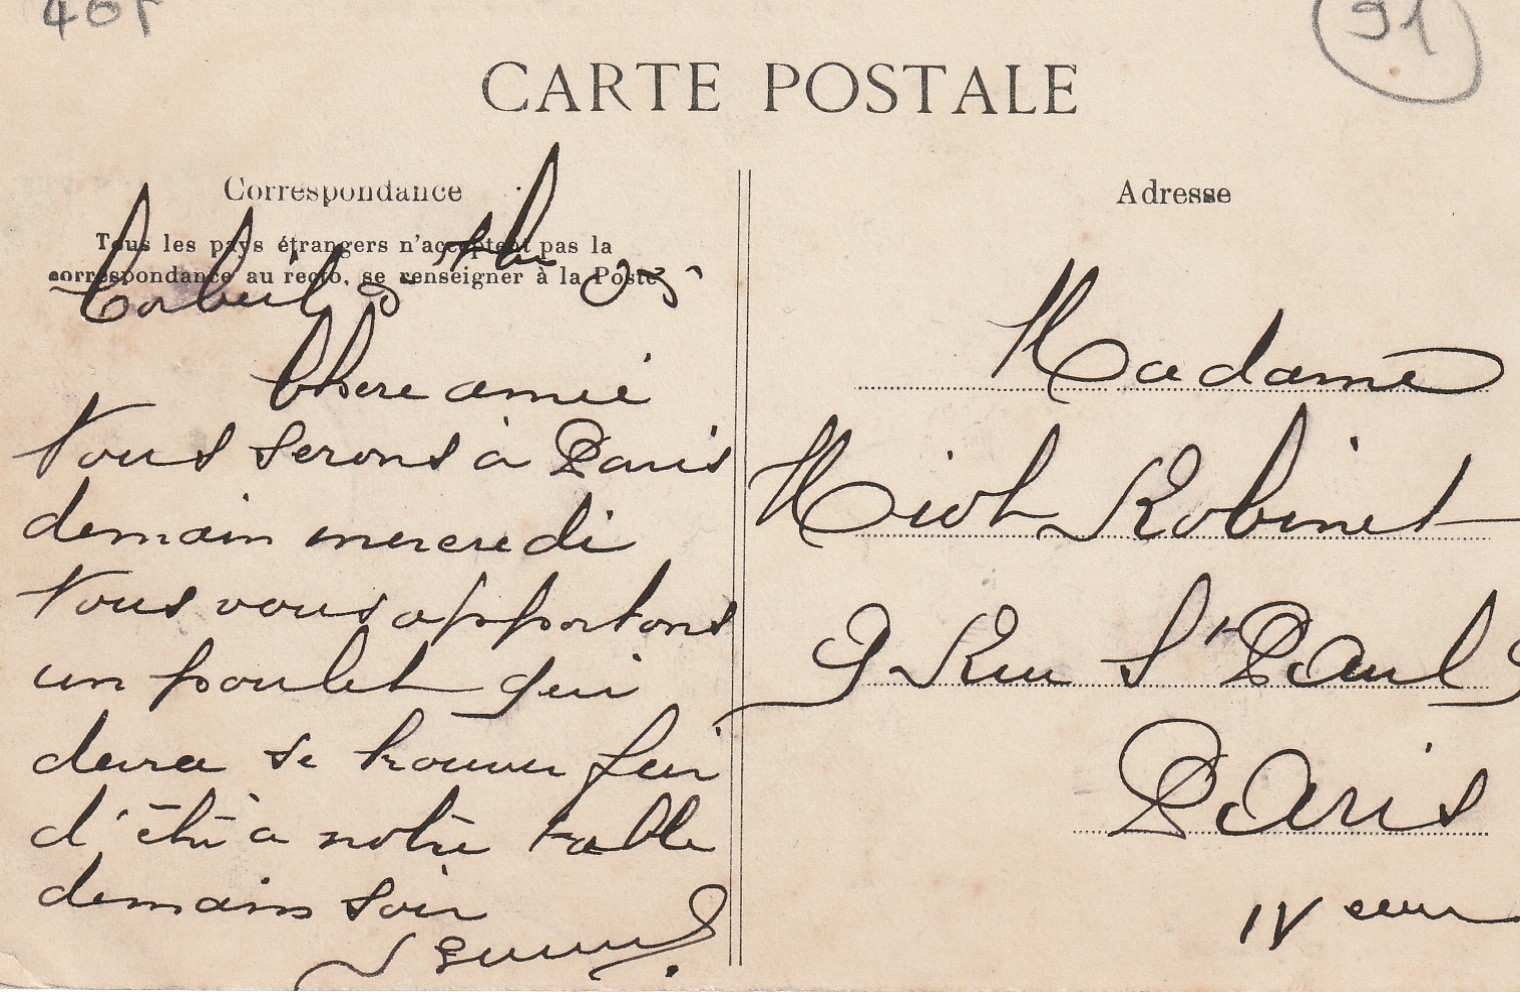 91
CARTE POSTALE
Correspondance
Tous les pays étrangers n'acceptent pas la
correspondance au recto, se renseigner à la Poste
Corbeil 5 05
Chere amie
Nous serons à Paris
demain mercredi
Nous vous apportons
un poulet qui
devra se trouver fier
d'être à notre table
demain soir
Adresse
Madame
Miot Robinet
9 Rue St Paul 9
Paris
IV eme